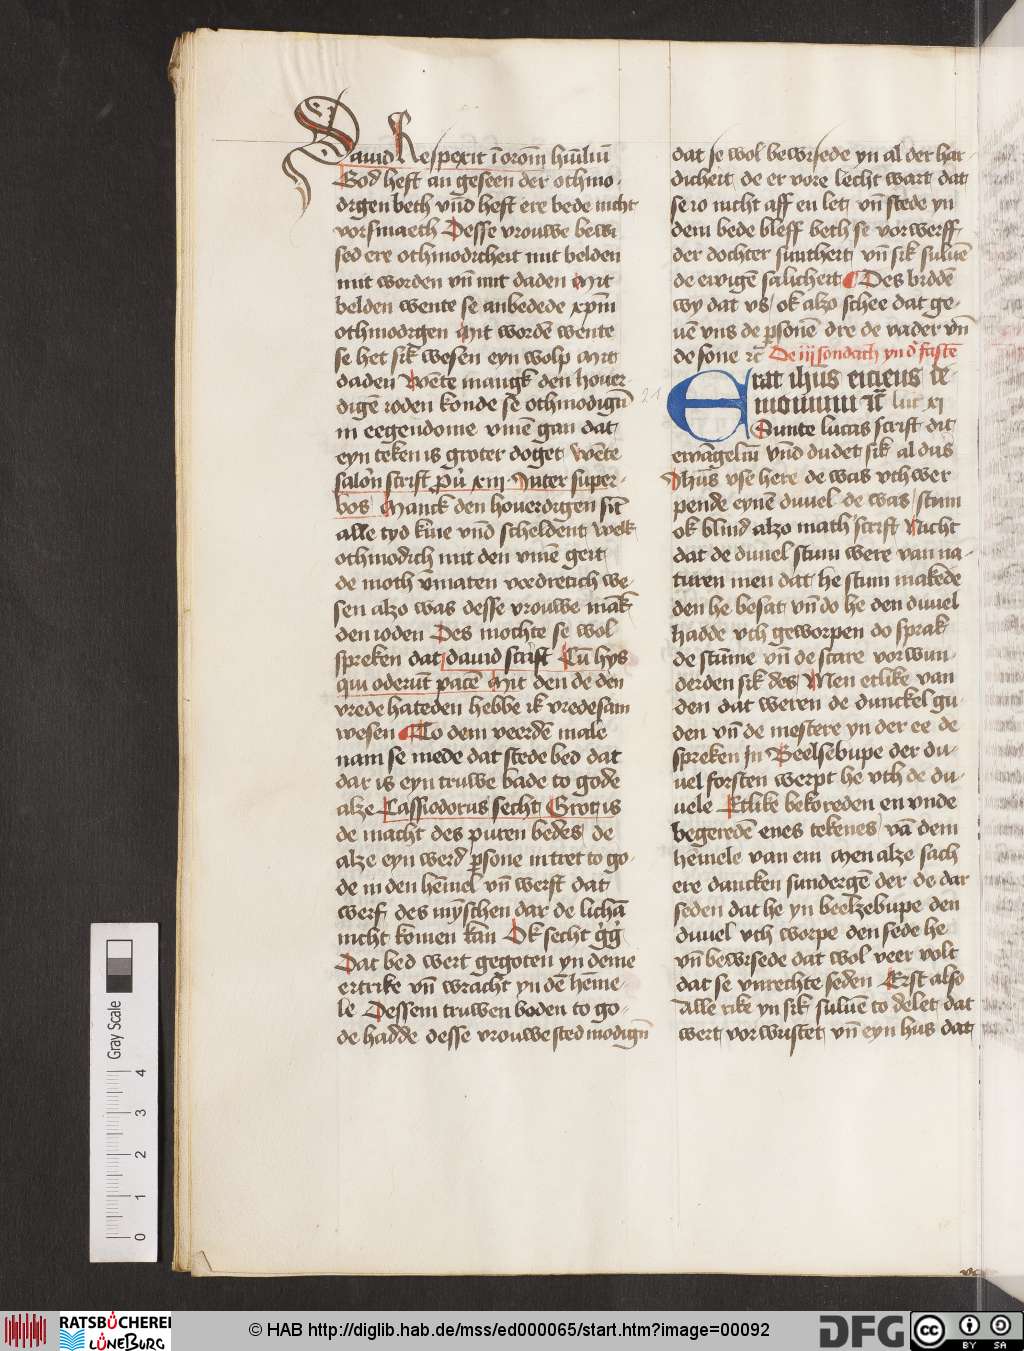 Dauid Respexit i oroēm hūiliū
God heft an geseen der othmo-
digen beth vn̄d heft ere bede nicht
vorsmaeth Desse vrouwe bewi
sed ere othmodicheit mit belden
mit worden vn̄ mit daden Mit
belden wente se anbedede xpm̄
othmodigen Mit wordē wente
se het sik wesen eyn wolp Mit
daden Wēte mangk den houer-
digē ioden konde se othmodigūd
in eegendome vmē gan dat
eyn teken is groter doget wēte
salōn scrift pūu xiii Inter super-
bos Manck den houerdigen sīt
alle tyd kiue vn̄d scheldent welk
othmodich mit den vmē geit
de moth vmaten vordretich we-
sen alzo was desse vrouwe māk
den ioden Des mochte se wol
spreken dat dauid scrift Cū hys
qui oderūt pacē Mit den de den
vrede hateden hebbe ik vredesam
wesen To dem veerdē male
nam se mede dat stede bed dat
dar is eyn truwe bade to gode
alze Cassiodorus secht Grot is
de macht des puren bedes de
alze eyn werd psone in tret to go-
de in den hēmel vn̄ werft dat
werf des mȳschen dar de lichā
nicht komen kan Ok secht g̊g̊
Dat bed wert gegoten yn deme
ertrike vn̄ wracht yn dē hēme-
le Dessem truwen boden to go-
de hadde desse vrouwe stedmodigū
dat se wol bewisede yn al der har-
dicheit de er vore lecht wart dat
se io nicht aff en let vn̄ stede yn
dem bede bleff beth se vorwerff
der dochter suntheit vn̄ sik suluē
de ewigē salicheit Des biddē
wy dat vs ok alzo schee dat ge-
uē vns de psonē dre de vader vn̄
de sone rc̄ De iij sondach yn d' fastē
Erat ihus eiciens de-
monium rc̄ luc xi
Sunte lucas scrift dit
ewāgeliū vn̄d dudet sik al dus
Ihūs vse here de was vth wer
pende eynē duuel de was stum
ok blind alzo math' scrift Nicht
dat de duuel stum were van na-
turen men dat he stum makede
den he besat vn̄ do he den duuel
hadde vth geworpen do sprak
de stūme vn̄ de scare vorwun-
derden sik des Men etlike van
den dat weren de dunckel gu-
den vn̄ de mestere yn der ee de
spreken In Beelsebupe der du-
uel forsten werpt he vth de du-
uele Etlike bekoreden en vnde
begeredē enes tekenes vā dem
hēmele van em Men alze sach
ere dancken sundergē der de dar
seden dat he yn beelzebupe den
duuel vth worpe den sede he
vn̄ bewisede dat wol veer volt
dat se vnrechte seden Erst also
Alle rike yn sik suluē to delet dat
wert vorwustet vn̄ eyn hus dat
Gray Scale
0 1 2 3 4
RATSBÜCHEREI
LÜNEBURG
© HAB http://diglib.hab.de/mss/ed000065/start.htm?image=00092
DFG
cc
BY SA